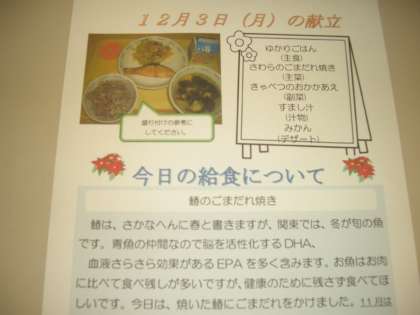 12月3日(月)の献立
ゆかりごはん
(主食)
さわらのごまだれ焼き
(主菜)
きゃべつのおかかあえ
(副菜)
すまし汁
(汁物)
みかん
(デザート)
盛り付けの参考に
してください。
今日の給食について
鰆のごまだれ焼き
鰆は、さかなへんに春と書きますが、関東では、冬が旬の魚
です。青魚の仲間なので脳を活性化するDHA、
血液さらさら効果があるEPAを多く含みます。お魚はお肉
に比べて食べ残しが多いですが、健康のために残さず食べてほ
しいです。今日は、焼いた鰆にごまだれをかけました。11月は